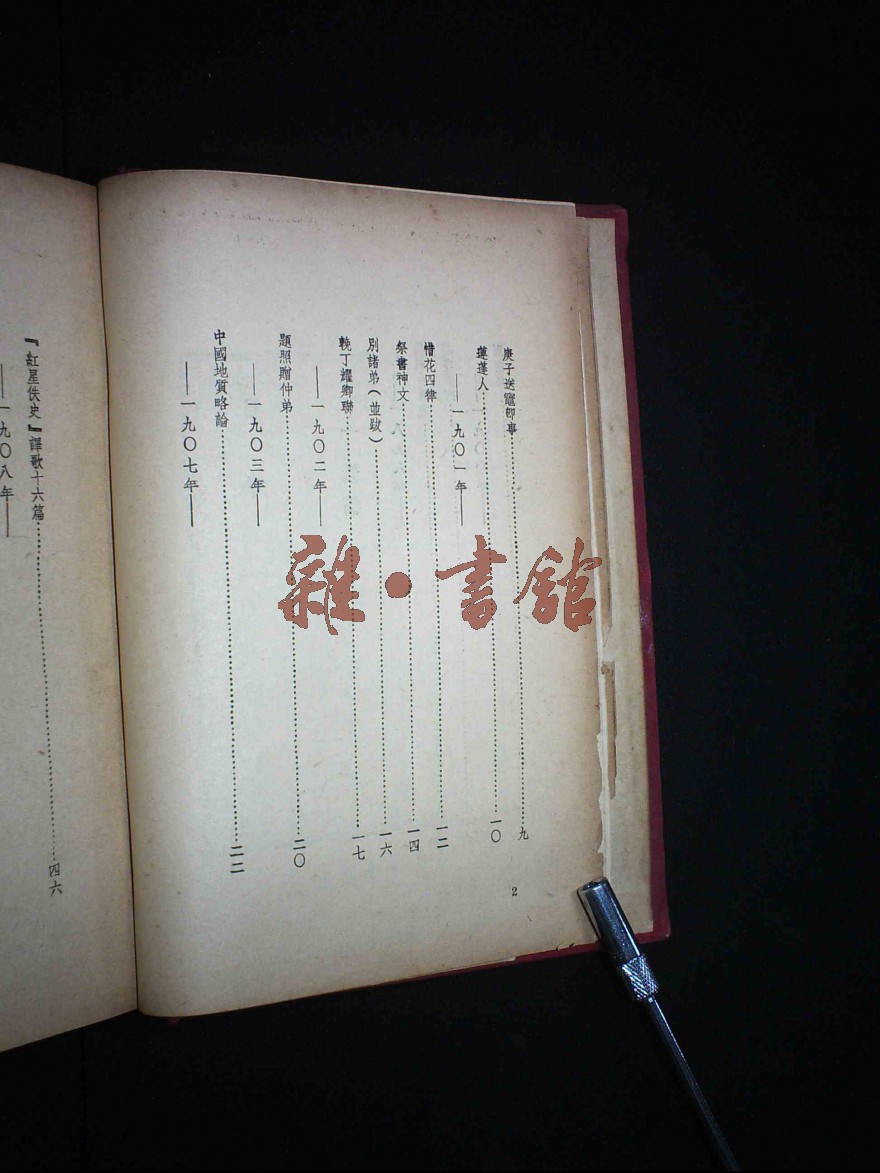 庚子送竈卽事……九
蓮蓬人……一〇
——一九〇一年——
惜花四律……一二
祭書神文……一四
別諸弟（並跋）……一六
輓丁耀卿聯……一七
——一九〇二年——
題照贈仲弟……二〇
——一九〇三年——
中國地質略論……二二
——一九〇七年——
2
『紅星佚史』譯歌十六篇……四六
——一九〇八年——
雜·書館